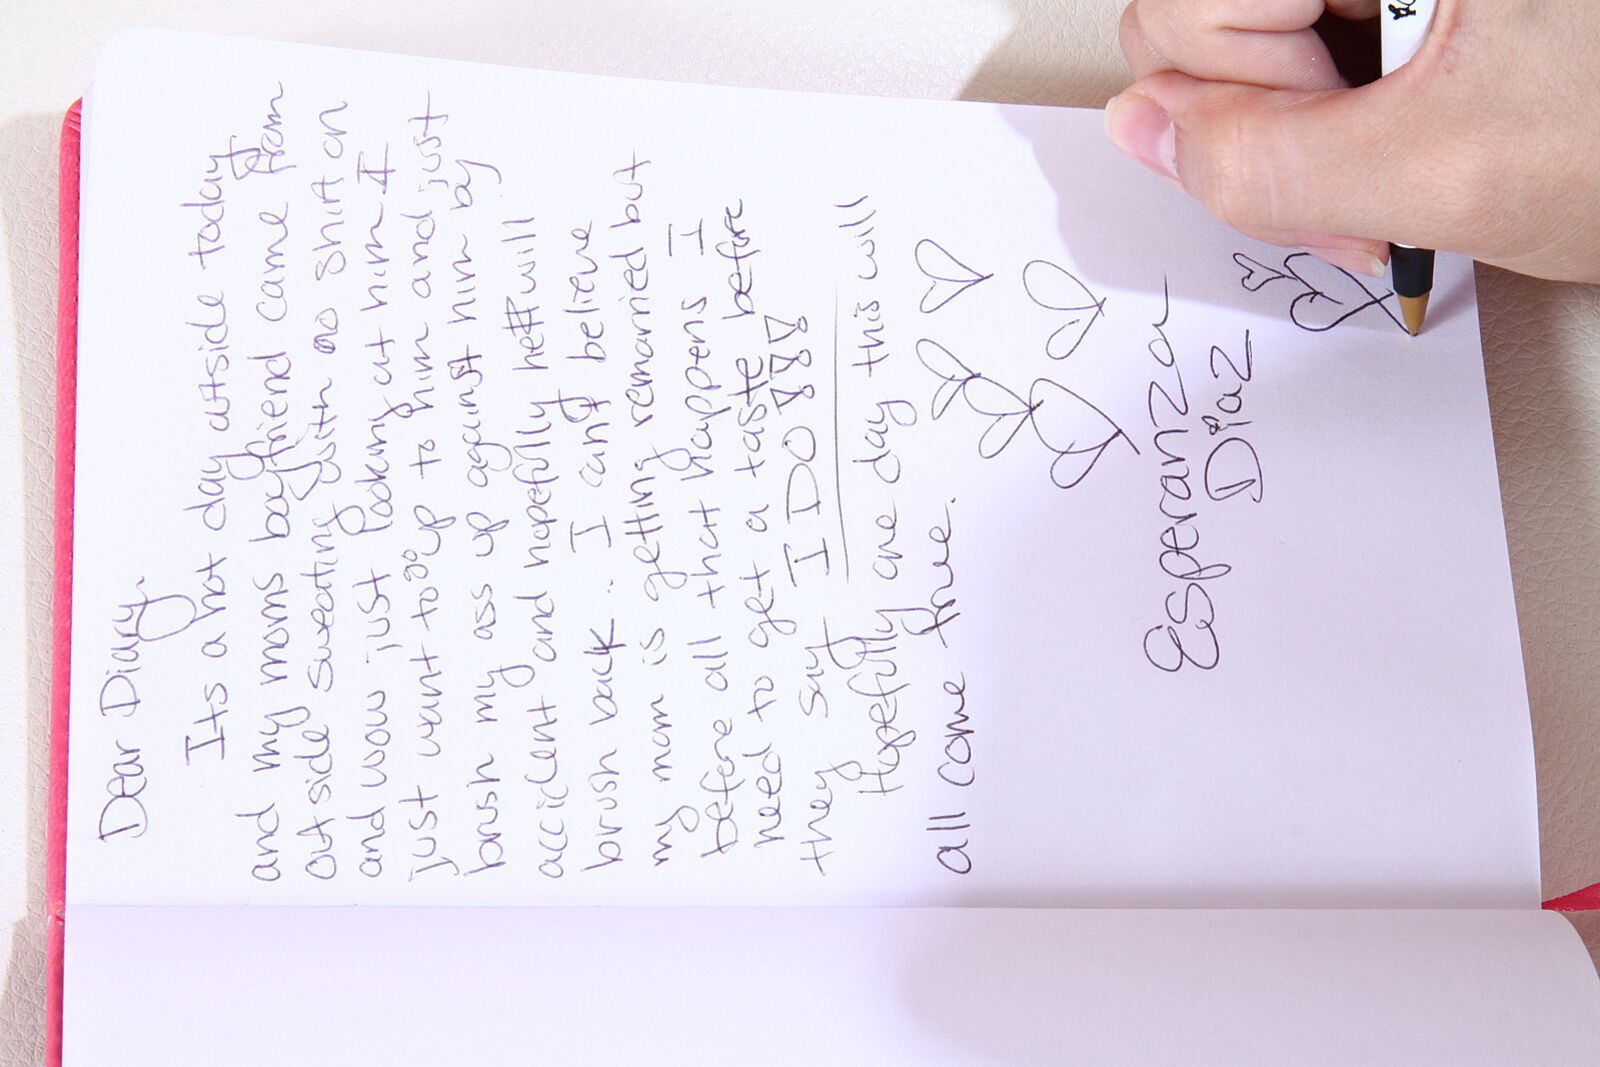 Dear Diary.
Its a hot day outside today
and my moms boyfriend came from
outside sweating with no shirt on
and wow just looking at him I
just want to go up to him and just
brush my ass up against him by
accident and hopefully he will
brush back. I can't believe
my mom is getting remarried but
before all that happens I
need to get a taste before
they say I DO!!!
Hopefully one day this will
all come true.
Esperanza
Diaz